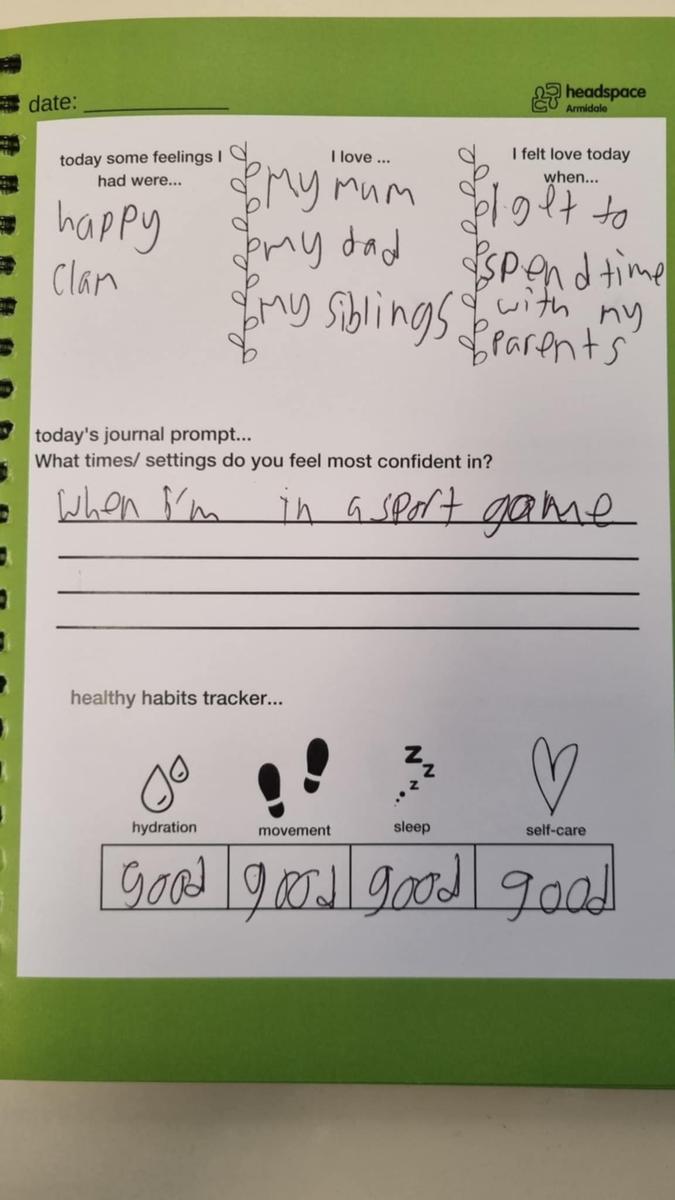 date: ____________
headspace
Armidale
today some feelings I
had were...
happy
clam
I love ...
my mum
my dad
my siblings
I felt love today
when...
I get to
spend time
with my
parents
today's journal prompt...
What times/ settings do you feel most confident in?
when I'm in a sport game
healthy habits tracker...
z
z
z
hydration movement sleep self-care
good good good good